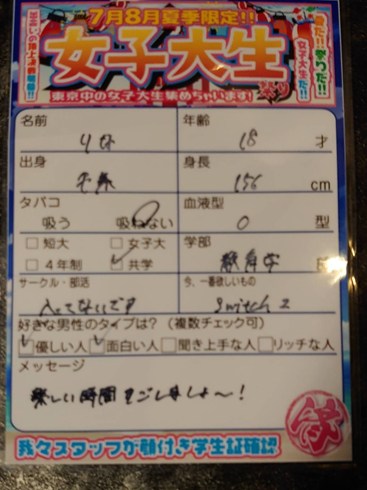 7月8月夏季限定!!
女子大生
祭り
東京中の女子大生集めちゃいます!
祭だ!!祭りだ!!
女子大生だ!!
名前
年齢
18 才
出身
身長
156 cm
タバコ
吸う 吸わない
血液型
O 型
短大 女子大
4年制 共学
学部
教育学
サークル・部活
入ってないです
今、一番欲しいもの
Switch 2
好きな男性のタイプは?(複数チェック可)
優しい人 面白い人 聞き上手な人 リッチな人
メッセージ
楽しい時間をごしましょ〜!
我々スタッフが顔付き学生証確認